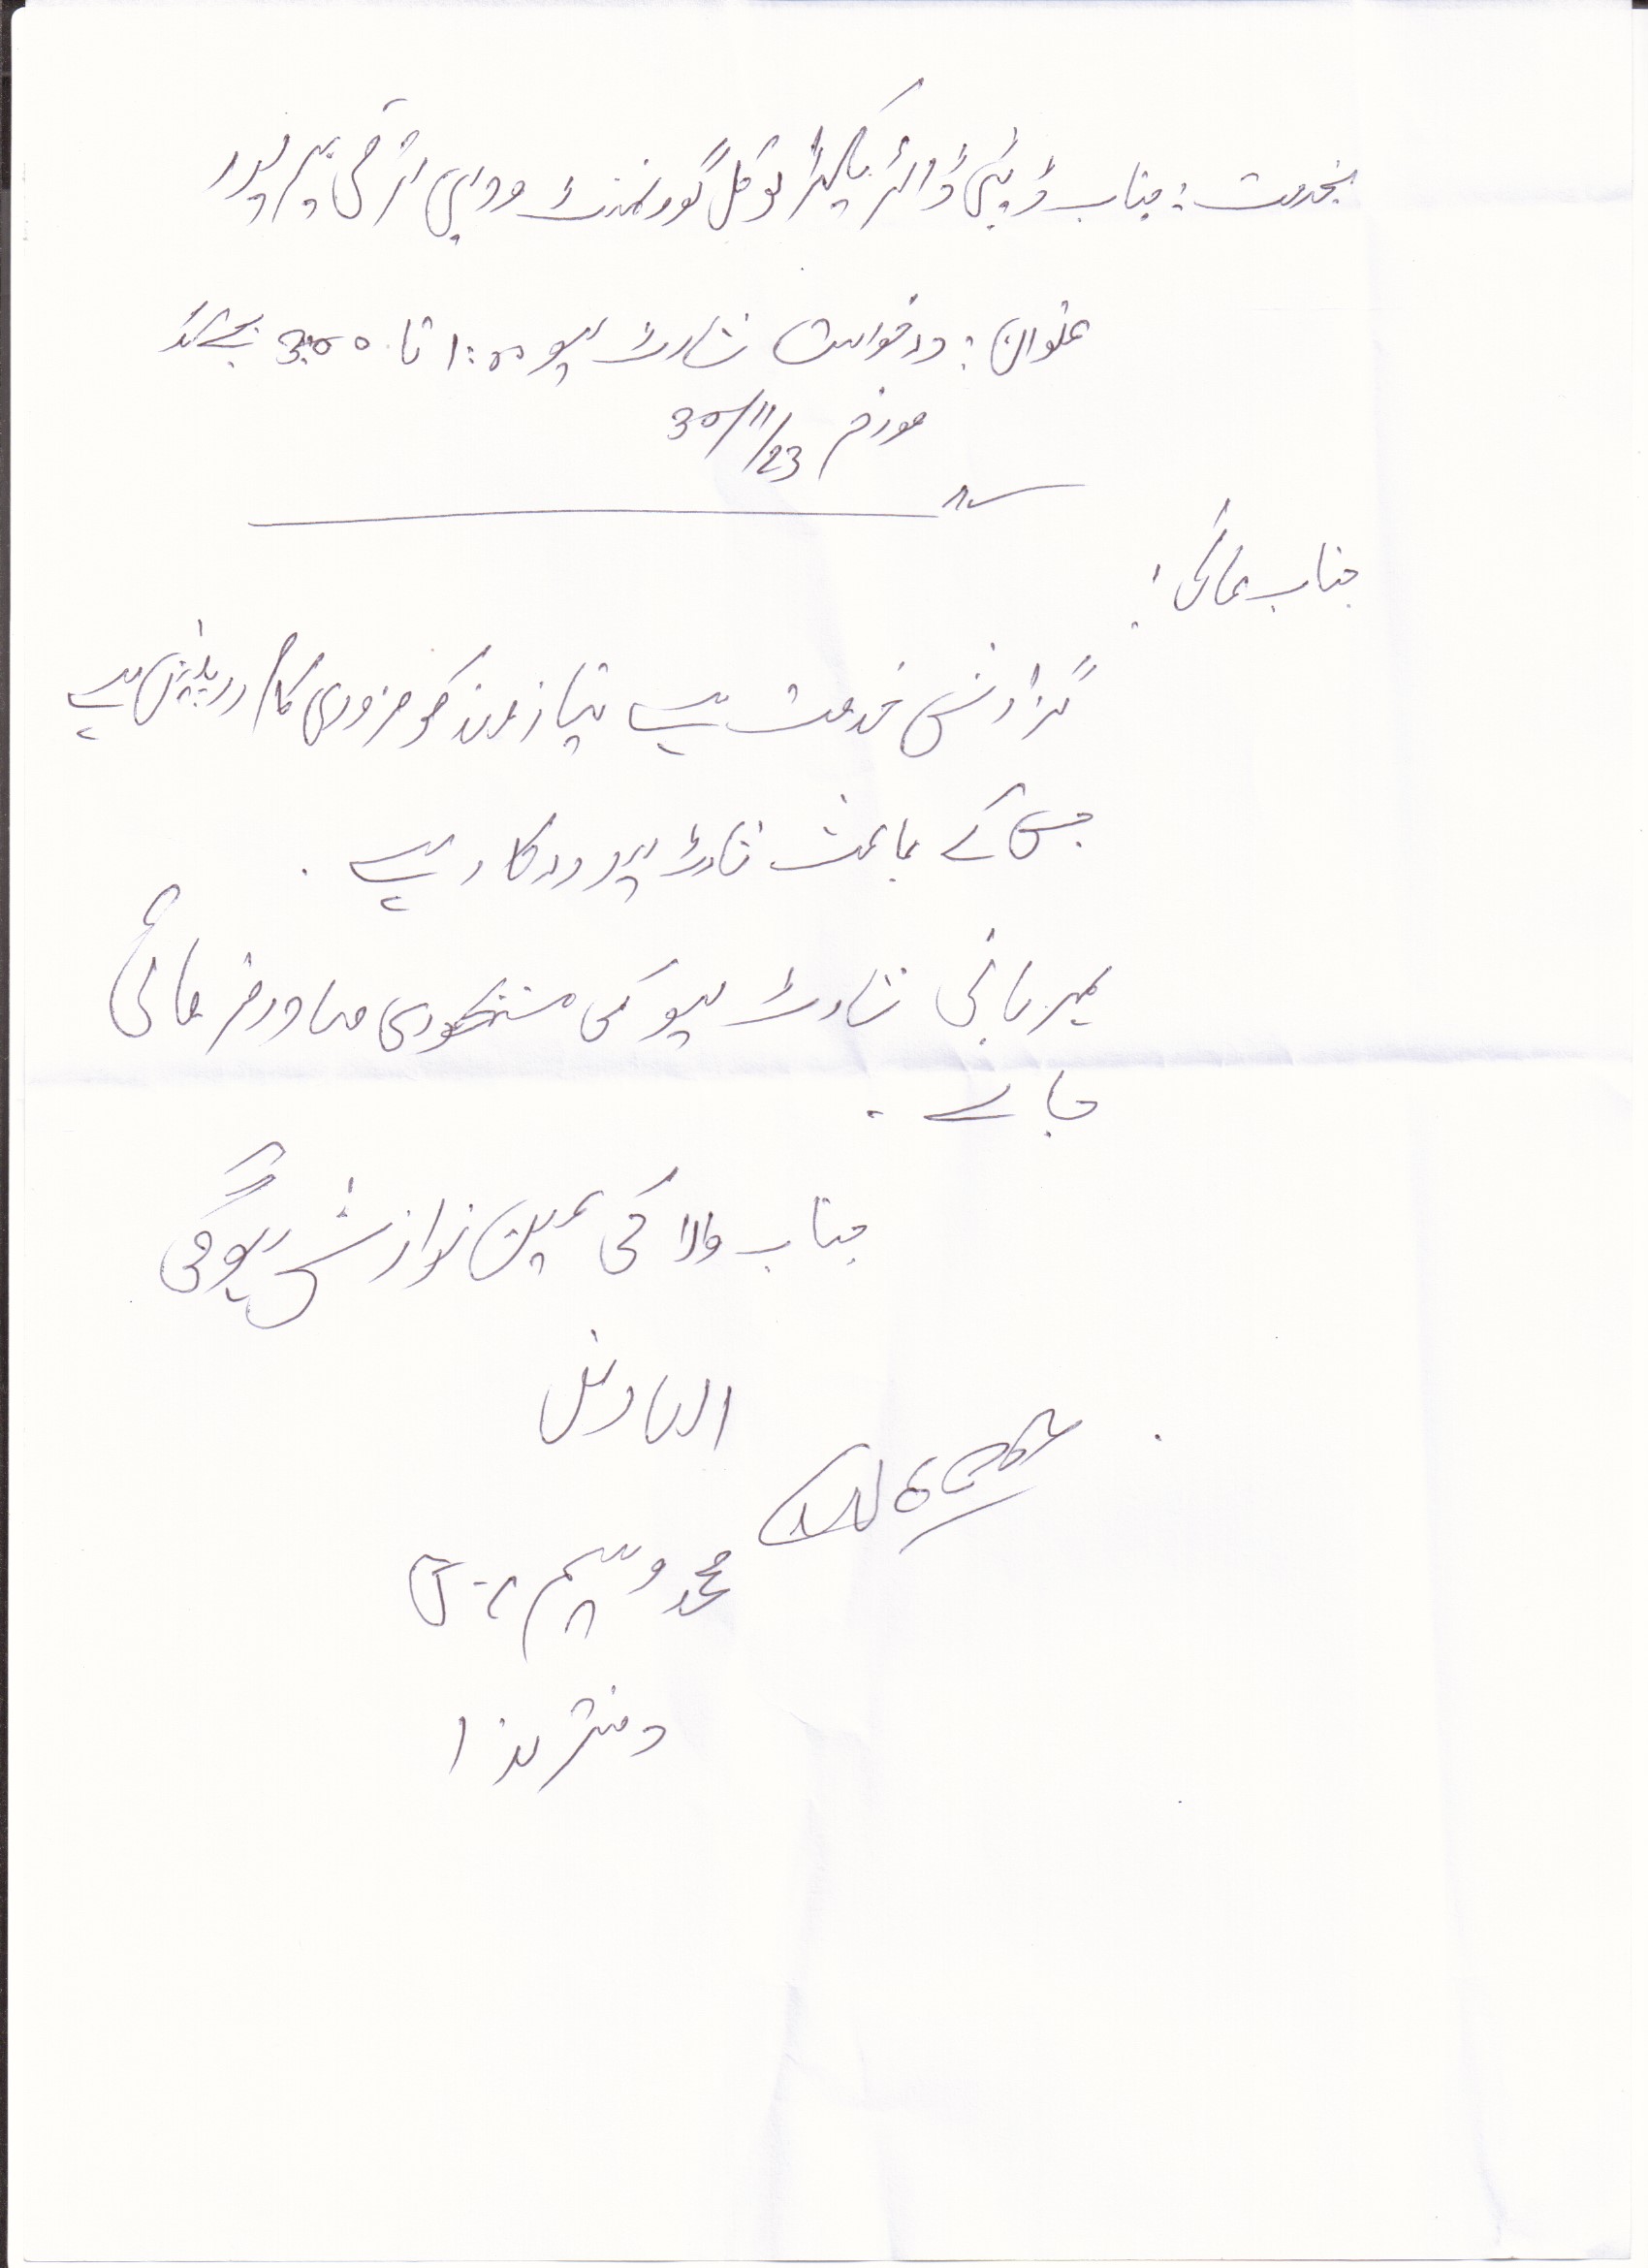 بخدمت : جناب ڈپٹی ڈائریکٹر لوکل گورنمنٹ ودیہی ترقی میرپور
عنوان : درخواست شارٹ لیو 1:00 تا 3:00 بجے تک
مورخہ 30/11/23
جناب عالی !
گزارش خدمت ہے نیازمند کو ضروری کام درپیش ہے
جس کے باعث شارٹ لیو درکار ہے .
بمہربانی شارٹ لیو کی منظوری صادر فرمائی
جائے .
جناب والا کی عین نوازش ہوگی
العارض
محمد وسیم
دفتر ہذا